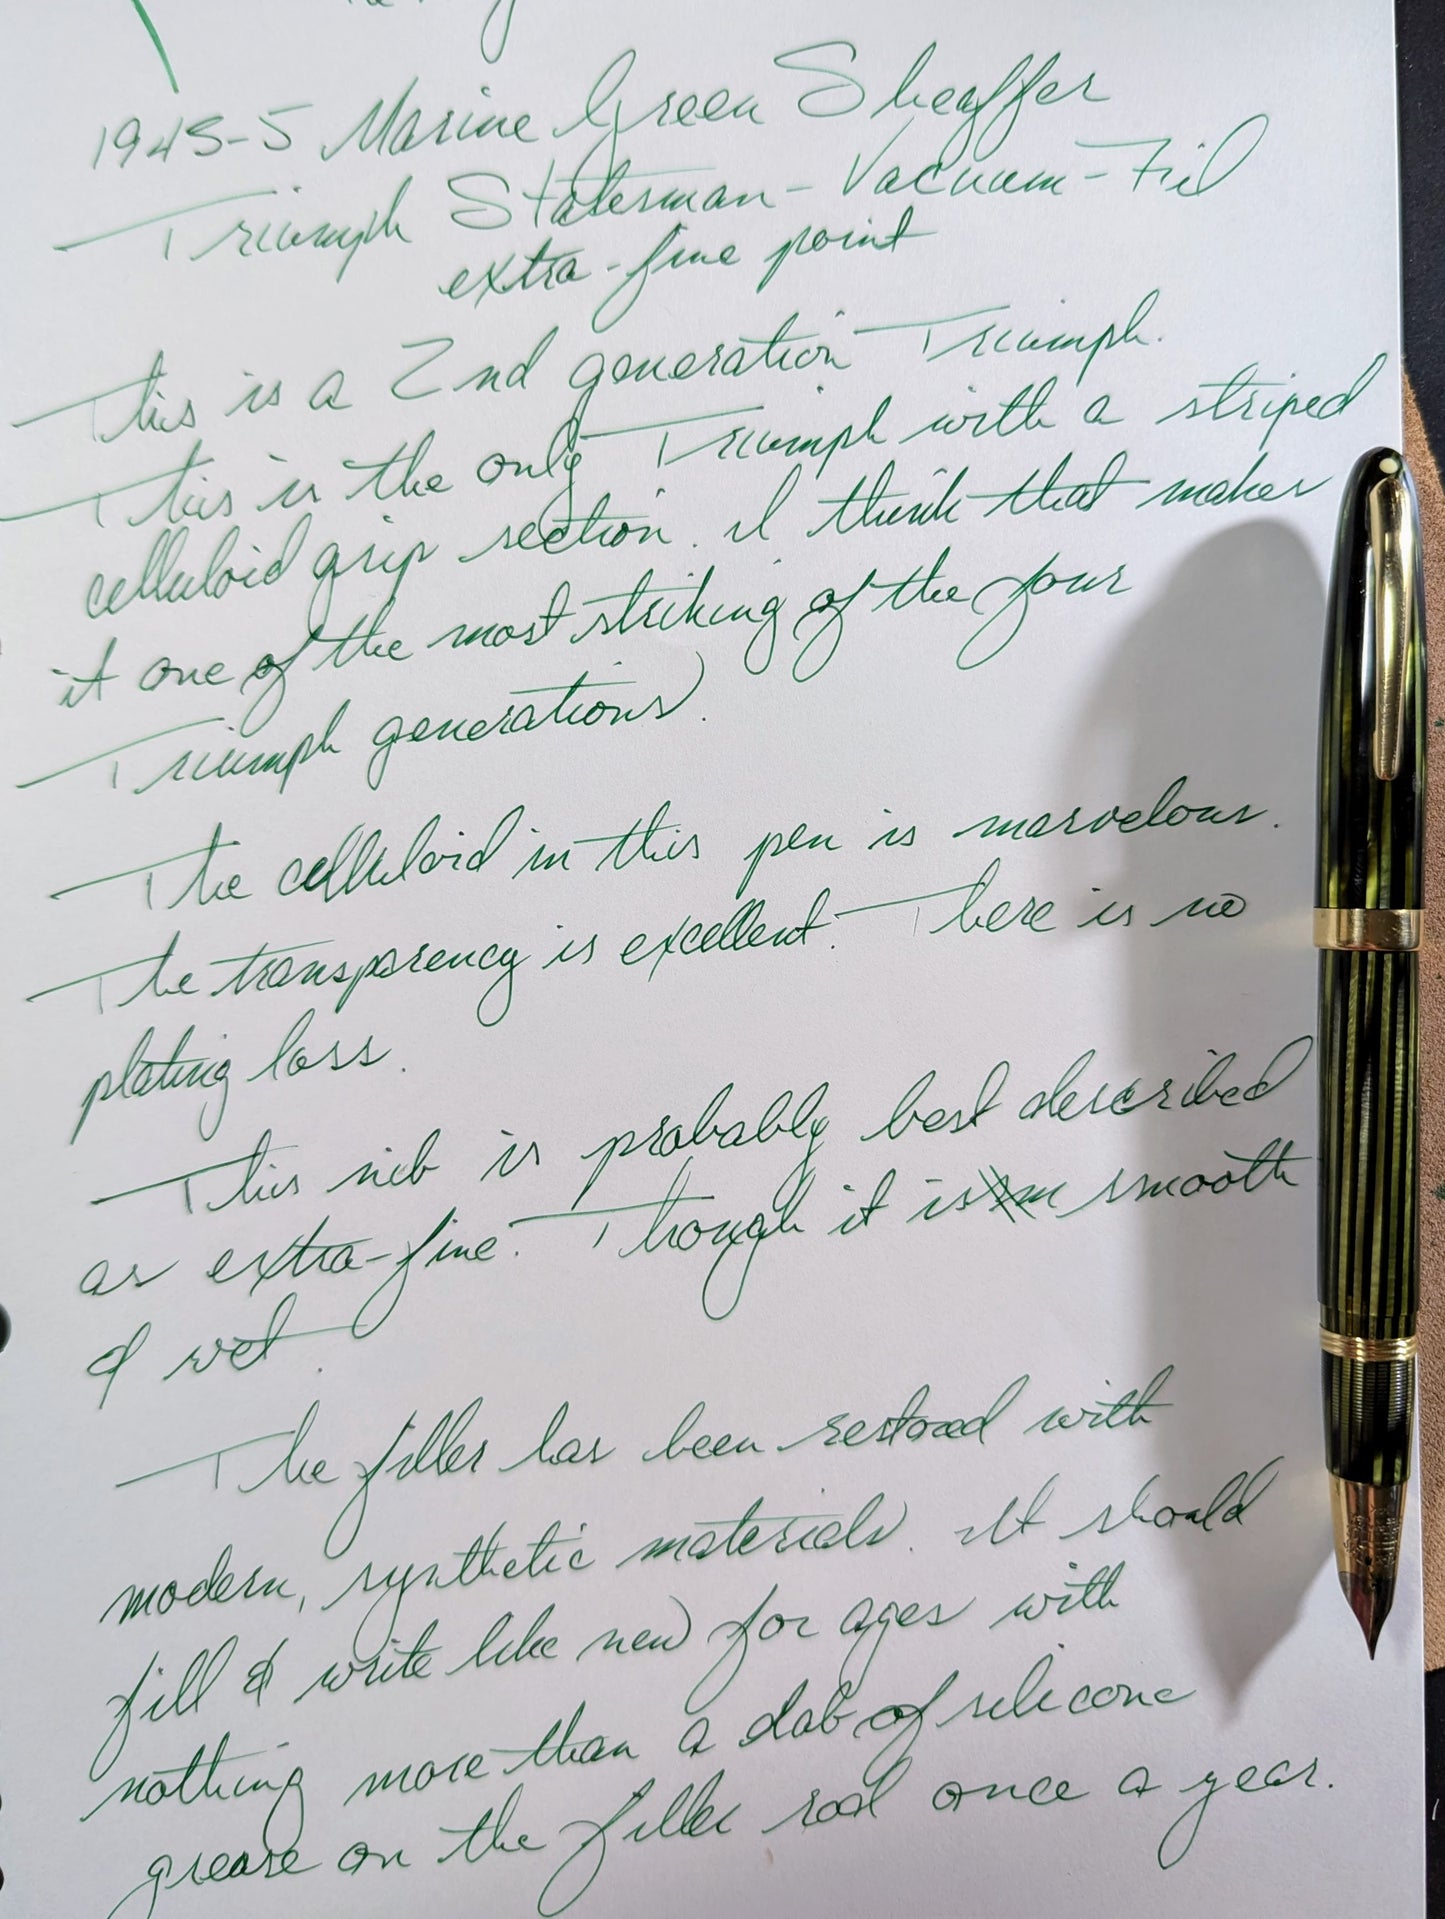 1943-5 Marine Green Sheaffer
Triumph Statesman - Vacuum-Fil
extra-fine point
This is a 2nd generation Triumph.
This is the only Triumph with a striped
celluloid grip section. I think that makes
it one of the most striking of the four
Triumph generations.
The celluloid in this pen is marvelous.
The transparency is excellent. There is no
plating loss.
This nib is probably best described
as extra-fine. Though it is smooth
& wet.
The filler has been restored with
modern, synthetic materials. It should
fill & write like new for ages with
nothing more than a dab of silicone
grease on the filler rod once a year.